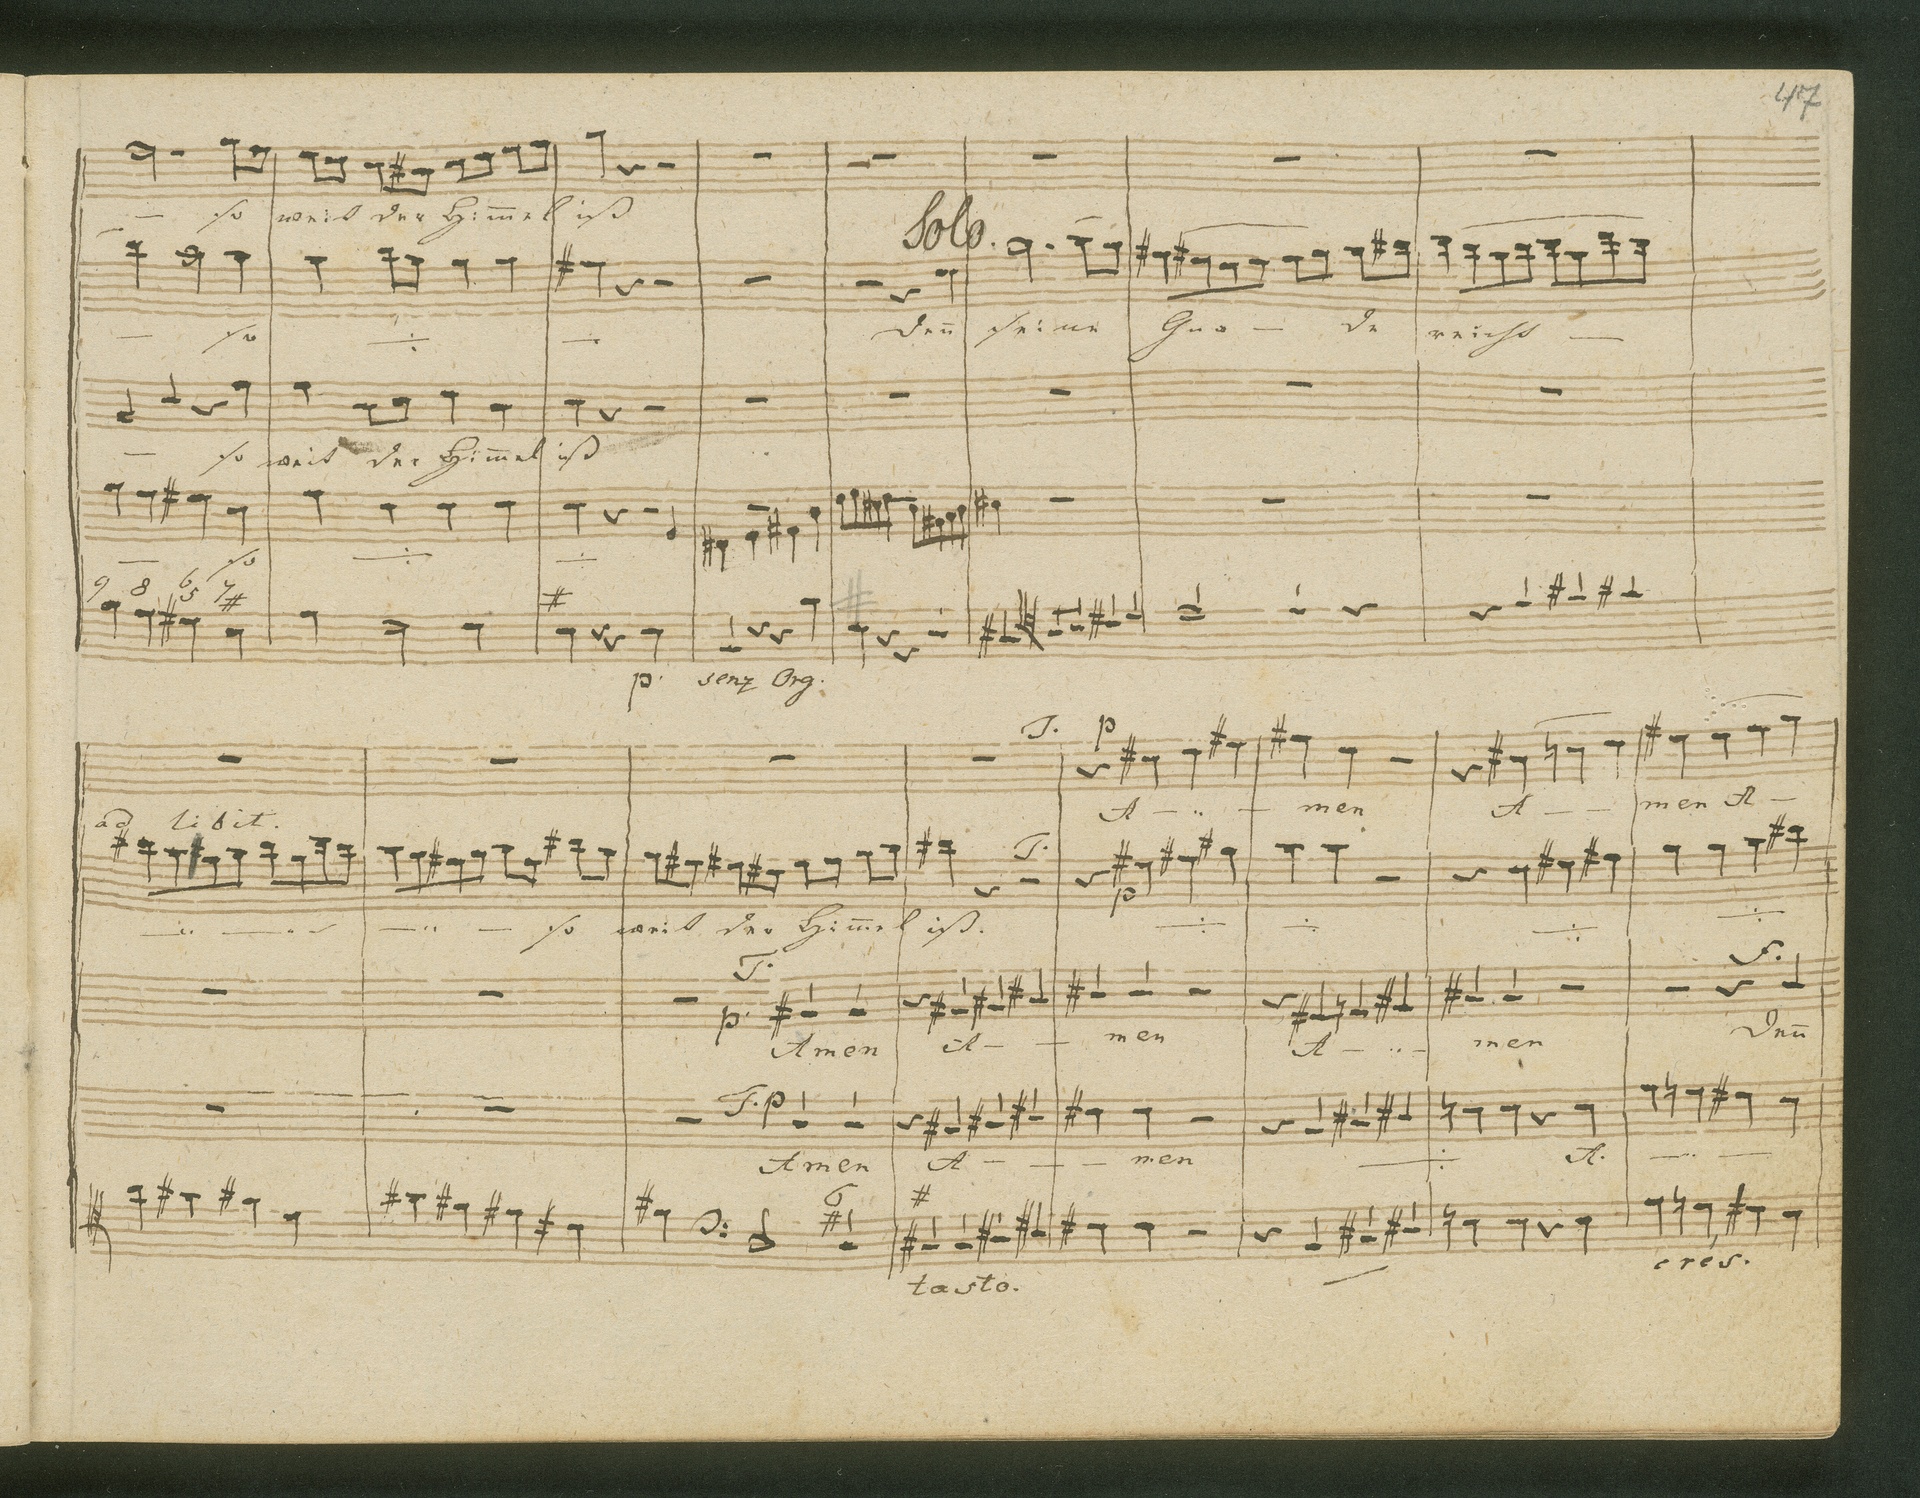 47
so weit der Him̄el ist
Solo.
so
Den̄ seine Gna - de reicht
so weit der Him̄el ist
so
9 8 6 5 7 # #
p. senz Org.
T. p
A - - men A - - men A -
ad libit.
T.
p
so weit der Him̄el ist.
T.
p.
S.
Amen A - - men A - - men Den̄
T. p
Amen A - - - men A.
6 # #
tasto. cres.